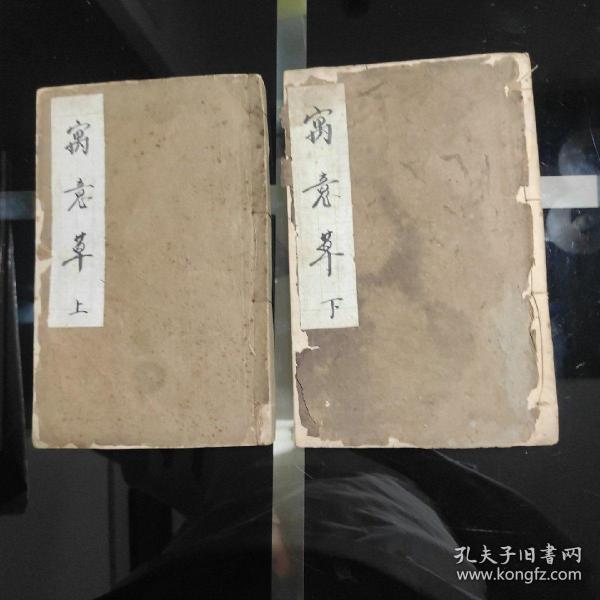 寓意草
上
寓意草
下
孔夫子旧書网
www.kongfz.com